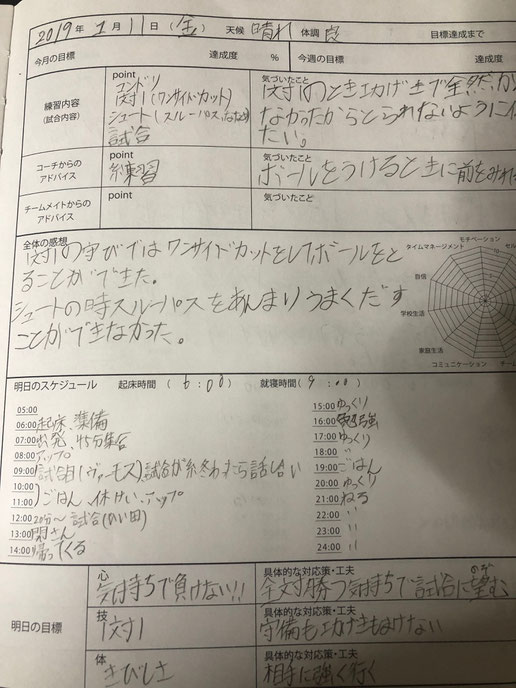 2019年 1月11日(金) 天候 晴れ 体調 良 目標達成まで
今月の目標 達成度 % 今週の目標 達成度
練習内容
(試合内容)
point
コンドリ
1対1(ワンサイドカット)
シュート(スルーパス
試合
気づいたこと
1対1のとき攻げきで全然か
なかったからとられないように
たい。
コーチからの
アドバイス
point
練習
気づいたこと
ボールをうけるときに前をみれ
チームメイトからの
アドバイス
point
気づいたこと
全体の感想
1対1の守びではワンサイドカットをしてボールをと
ることができた。
シュートの時スルーパスをあんまりうまくだす
ことができなかった。
モチベーション
タイムマネージメント
セル
自信
学校生活
家庭生活
コミュニケーション
チー
明日のスケジュール 起床時間 (6:00) 就寝時間(9:00)
05:00
06:00 起床、準備
07:00 出発、45分集合
08:00 アップ
09:00 試合(ヴァーモス)試合が終わったら話し合い
10:00
11:00 ごはん、休けい、アップ
12:00 20分〜試合
13:00
14:00 帰ってくる
15:00 ゆっくり
16:00 勉強
17:00 ゆっくり
18:00 〃
19:00 ごはん
20:00 ゆっくり
21:00 ねる
22:00 〃
23:00 〃
24:00 〃
明日の目標
心
気持ちで負けない!!
具体的な対応策・工夫
全対勝つ気持ちで試合に望む
のぞ
技
1対1
具体的な対応策・工夫
守備も攻げきもまけない
体
きびしさ
具体的な対応策・工夫
相手に強く行く